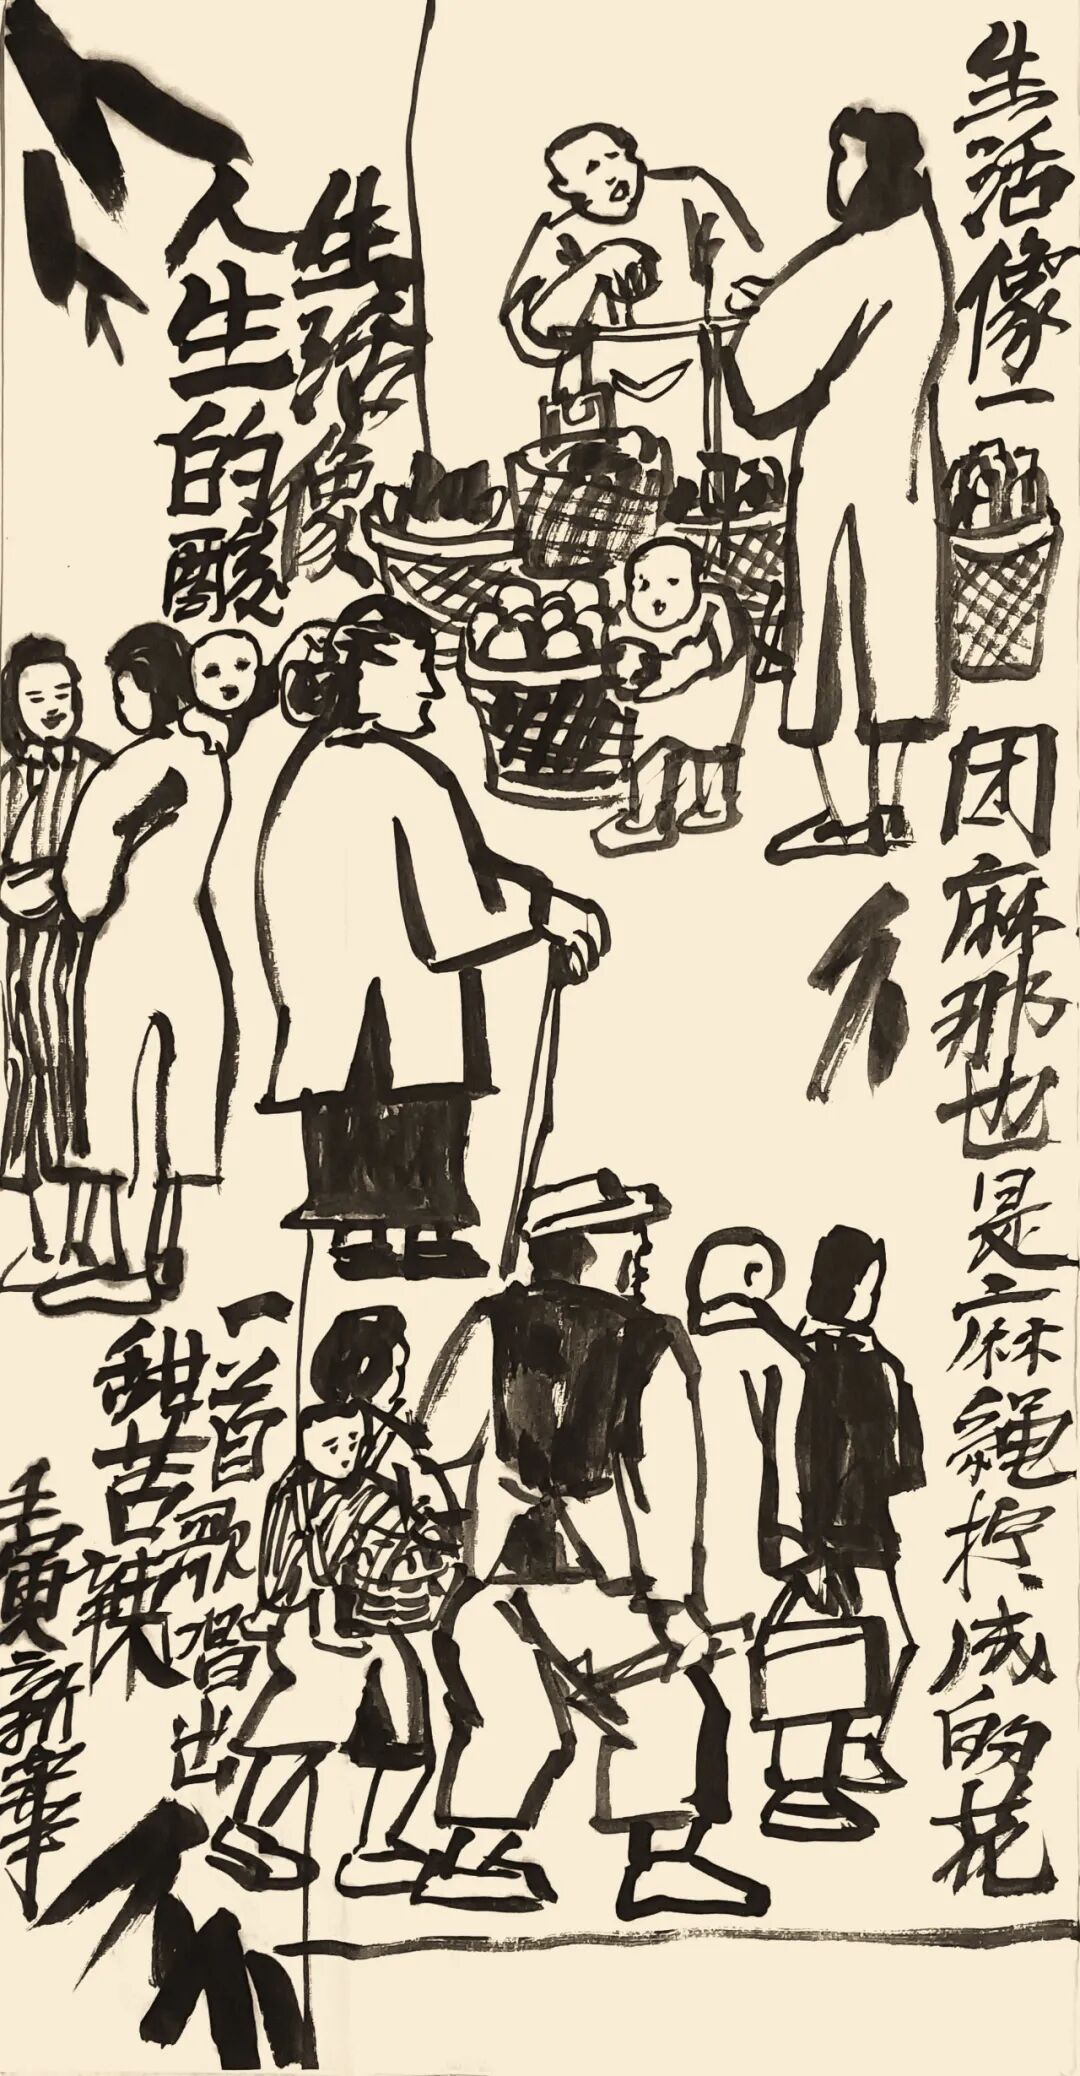 生活像一
团麻那也是麻繩拧成的花
生活像
一首歌唱出
人生的酸
甜苦辣
壬寅新華